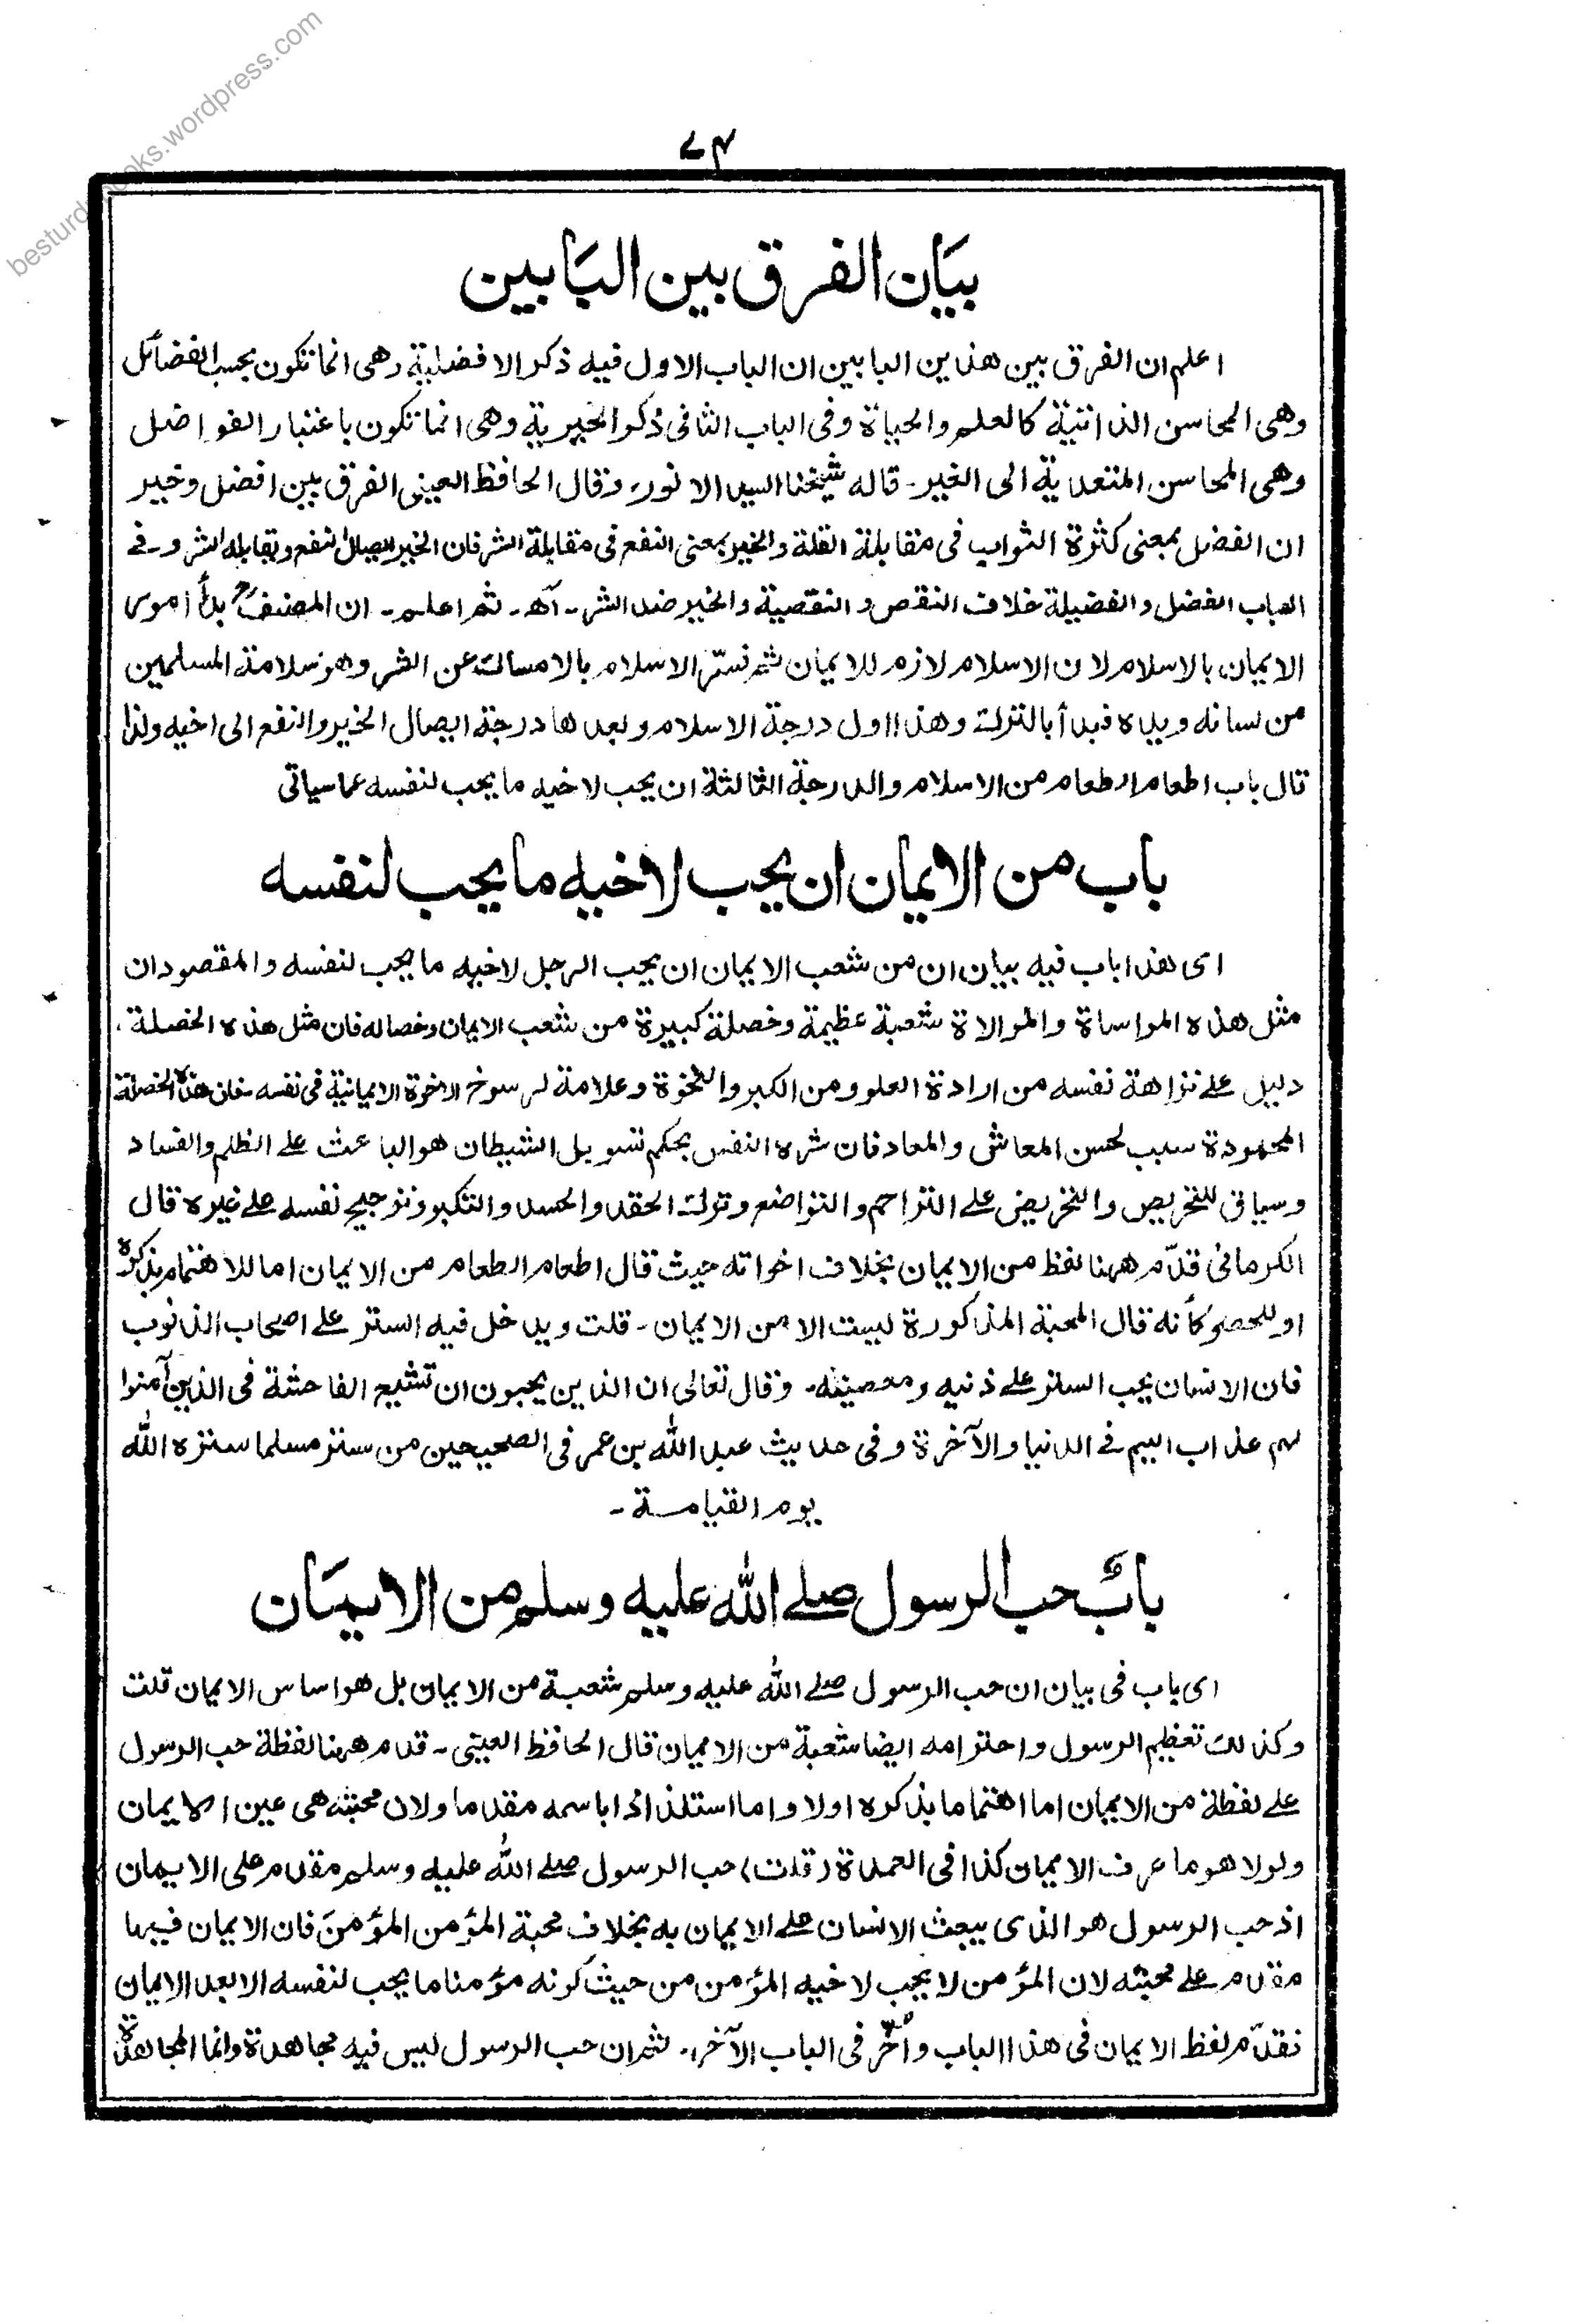 besturdubooks.wordpress.com
۷۴
بيان الفرق بين البابين
اعلم ان الفرق بين هذين البابين ان الباب الاول فيه ذكر الافضلية وهى انما تكون بحسب الفضائل
وهى المحاسن الذاتية كالعلم والحياة وفى الباب الثانى ذكر الخيرية وهى انما تكون باعتبار الفواضل
وهى المحاسن المتعدية الى الغير - قاله شيخنا السيد الانور، وقال الحافظ العينى الفرق بين افضل وخير
ان الفضل بمعنى كثرة الثواب فى مقابلة القلة والخير بمعنى النفع فى مقابلة الشر فان الخير ايصال النفع ويقابله الشر و - فے
العباب الفضل والفضيلة خلاف النقص والنقصية والخير ضد الشر - اھ - ثم اعلم - ان المصنفؒ بدأ امور
الايمان بالاسلام لان الاسلام لازم للايمان ثم فسّر الاسلام بالامساك عن الشر وهو سلامة المسلمين
من لسانه ويده فبدأ بالترك وهذا اول درجة الاسلام وبعدها درجة ايصال الخير والنفع الى اخيه ولذا
قال باب اطعام الطعام من الاسلام والدرجة الثالثة ان يحب لاخيه ما يحب لنفسه عما سياتى
باب من الايمان ان يحب لاخيه ما يحب لنفسه
اى هذا باب فيه بيان ان من شعب الايمان ان يحب الرجل لاخيه ما يحب لنفسه والمقصود ان
مثل هذه المواساة والموالاة شعبة عظيمة وخصلة كبيرة من شعب الايمان وخصاله فان مثل هذه الخصلة
دليل علے نزاهة نفسه من ارادة العلو ومن الكبر والنخوة وعلامة لرسوخ الاخوة الايمانية فى نفسه فان هذه الخصلة
المحمودة سبب لحسن المعاش والمعاد فان شره النفس بحكم تسويل الشيطان هو الباعث علے الظلم والفساد
وسياق للتحريص والتحريض علے التراحم والتواضع وترك الحقد والحسد والتكبر وترجيح نفسه علے غيره قال
الكرمانى قدّم ههنا لفظ من الايمان بخلاف اخواته حيث قال اطعام الطعام من الايمان اما للاهتمام بذكره
او للحصر كأنه قال المحبة المذكورة ليست الا من الايمان - قلت ويدخل فيه الستر علے اصحاب الذنوب
فان الانسان يحب الستر علے ذنبه ومعصيته - وقال تعالى ان الذين يحبون ان تشيع الفاحشة فى الذين آمنوا
لهم عذاب اليم فے الدنيا والآخرة وفى حديث عبد الله بن عمر فى الصحيحين من ستر مسلما ستره الله
يوم القيامة -
باب حب الرسول صلے الله عليه وسلم من الايمان
اى باب فى بيان ان حب الرسول صلے الله عليه وسلم شعبة من الايمان بل هو اساس الايمان قلت
وكذلك تعظيم الرسول واحترامه ايضا شعبة من الايمان قال الحافظ العينى - قدم ههنا لفظة حب الرسول
علے لفظة من الايمان اما اهتماما بذكره اولا واما استلذاذا باسمه مقدما ولان محبته هى عين الايمان
ولولا هو ما عرف الايمان كذا فى العمدة (قلت) حب الرسول صلے الله عليه وسلم مقدم على الايمان
اذ حب الرسول هو الذى يبعث الانسان علے الايمان به بخلاف محبة المؤمن المؤمنَ فان الايمان فيها
مقدم علے محبته لان المؤمن لا يحب لاخيه المؤمن من حيث كونه مؤمنا ما يحب لنفسه الا بعد الايمان
نقدّم لفظ الايمان فى هذا الباب واُخّر فى الباب الآخر، - ثم ان حب الرسول ليس فيه مجاهدة وانما المجاهدة